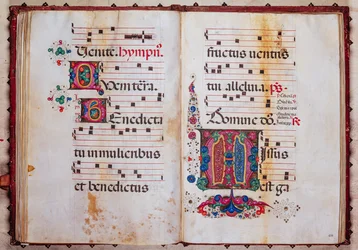 Uenite. hympn⁹.
Quem terra.
Benedicta
tu in mulieribus
et benedictus
fructus uentris
tui alleluia. ps.
Domine do.
Missus
est ga